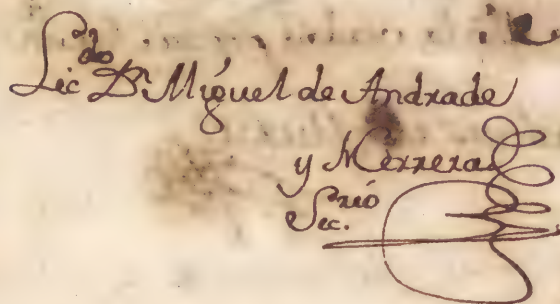 Licdo Dn Miguel de Andrade
y Herrera
Secrio